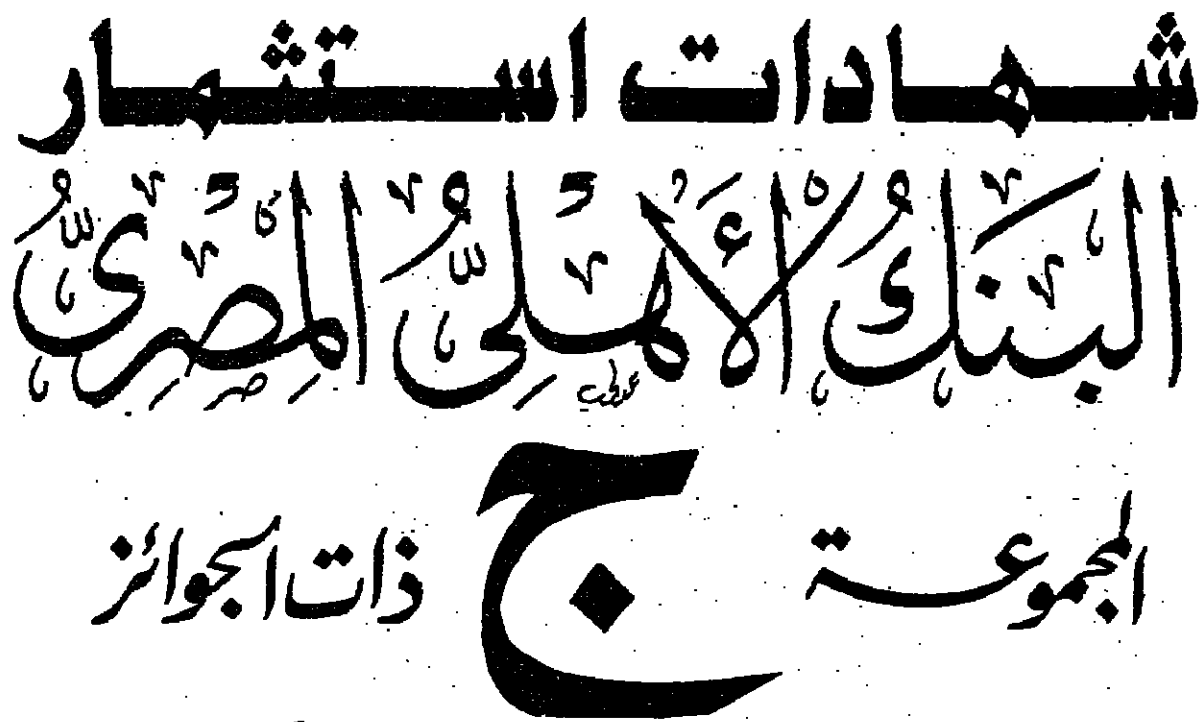 شهادات استثمار
البنك الأهلي المصري
المجموعة ج ذات الجوائز